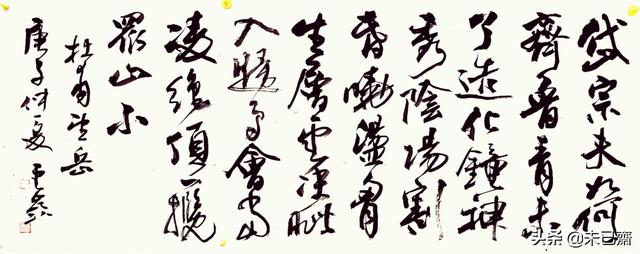 岱宗夫如何
齊魯青未
了造化鐘神
秀陰陽割
昏曉盪胸
生層雲決眦
入歸鳥會當
凌絕頂一攬
眾山小
杜甫望岳
庚子仲夏
头条 @未已齋